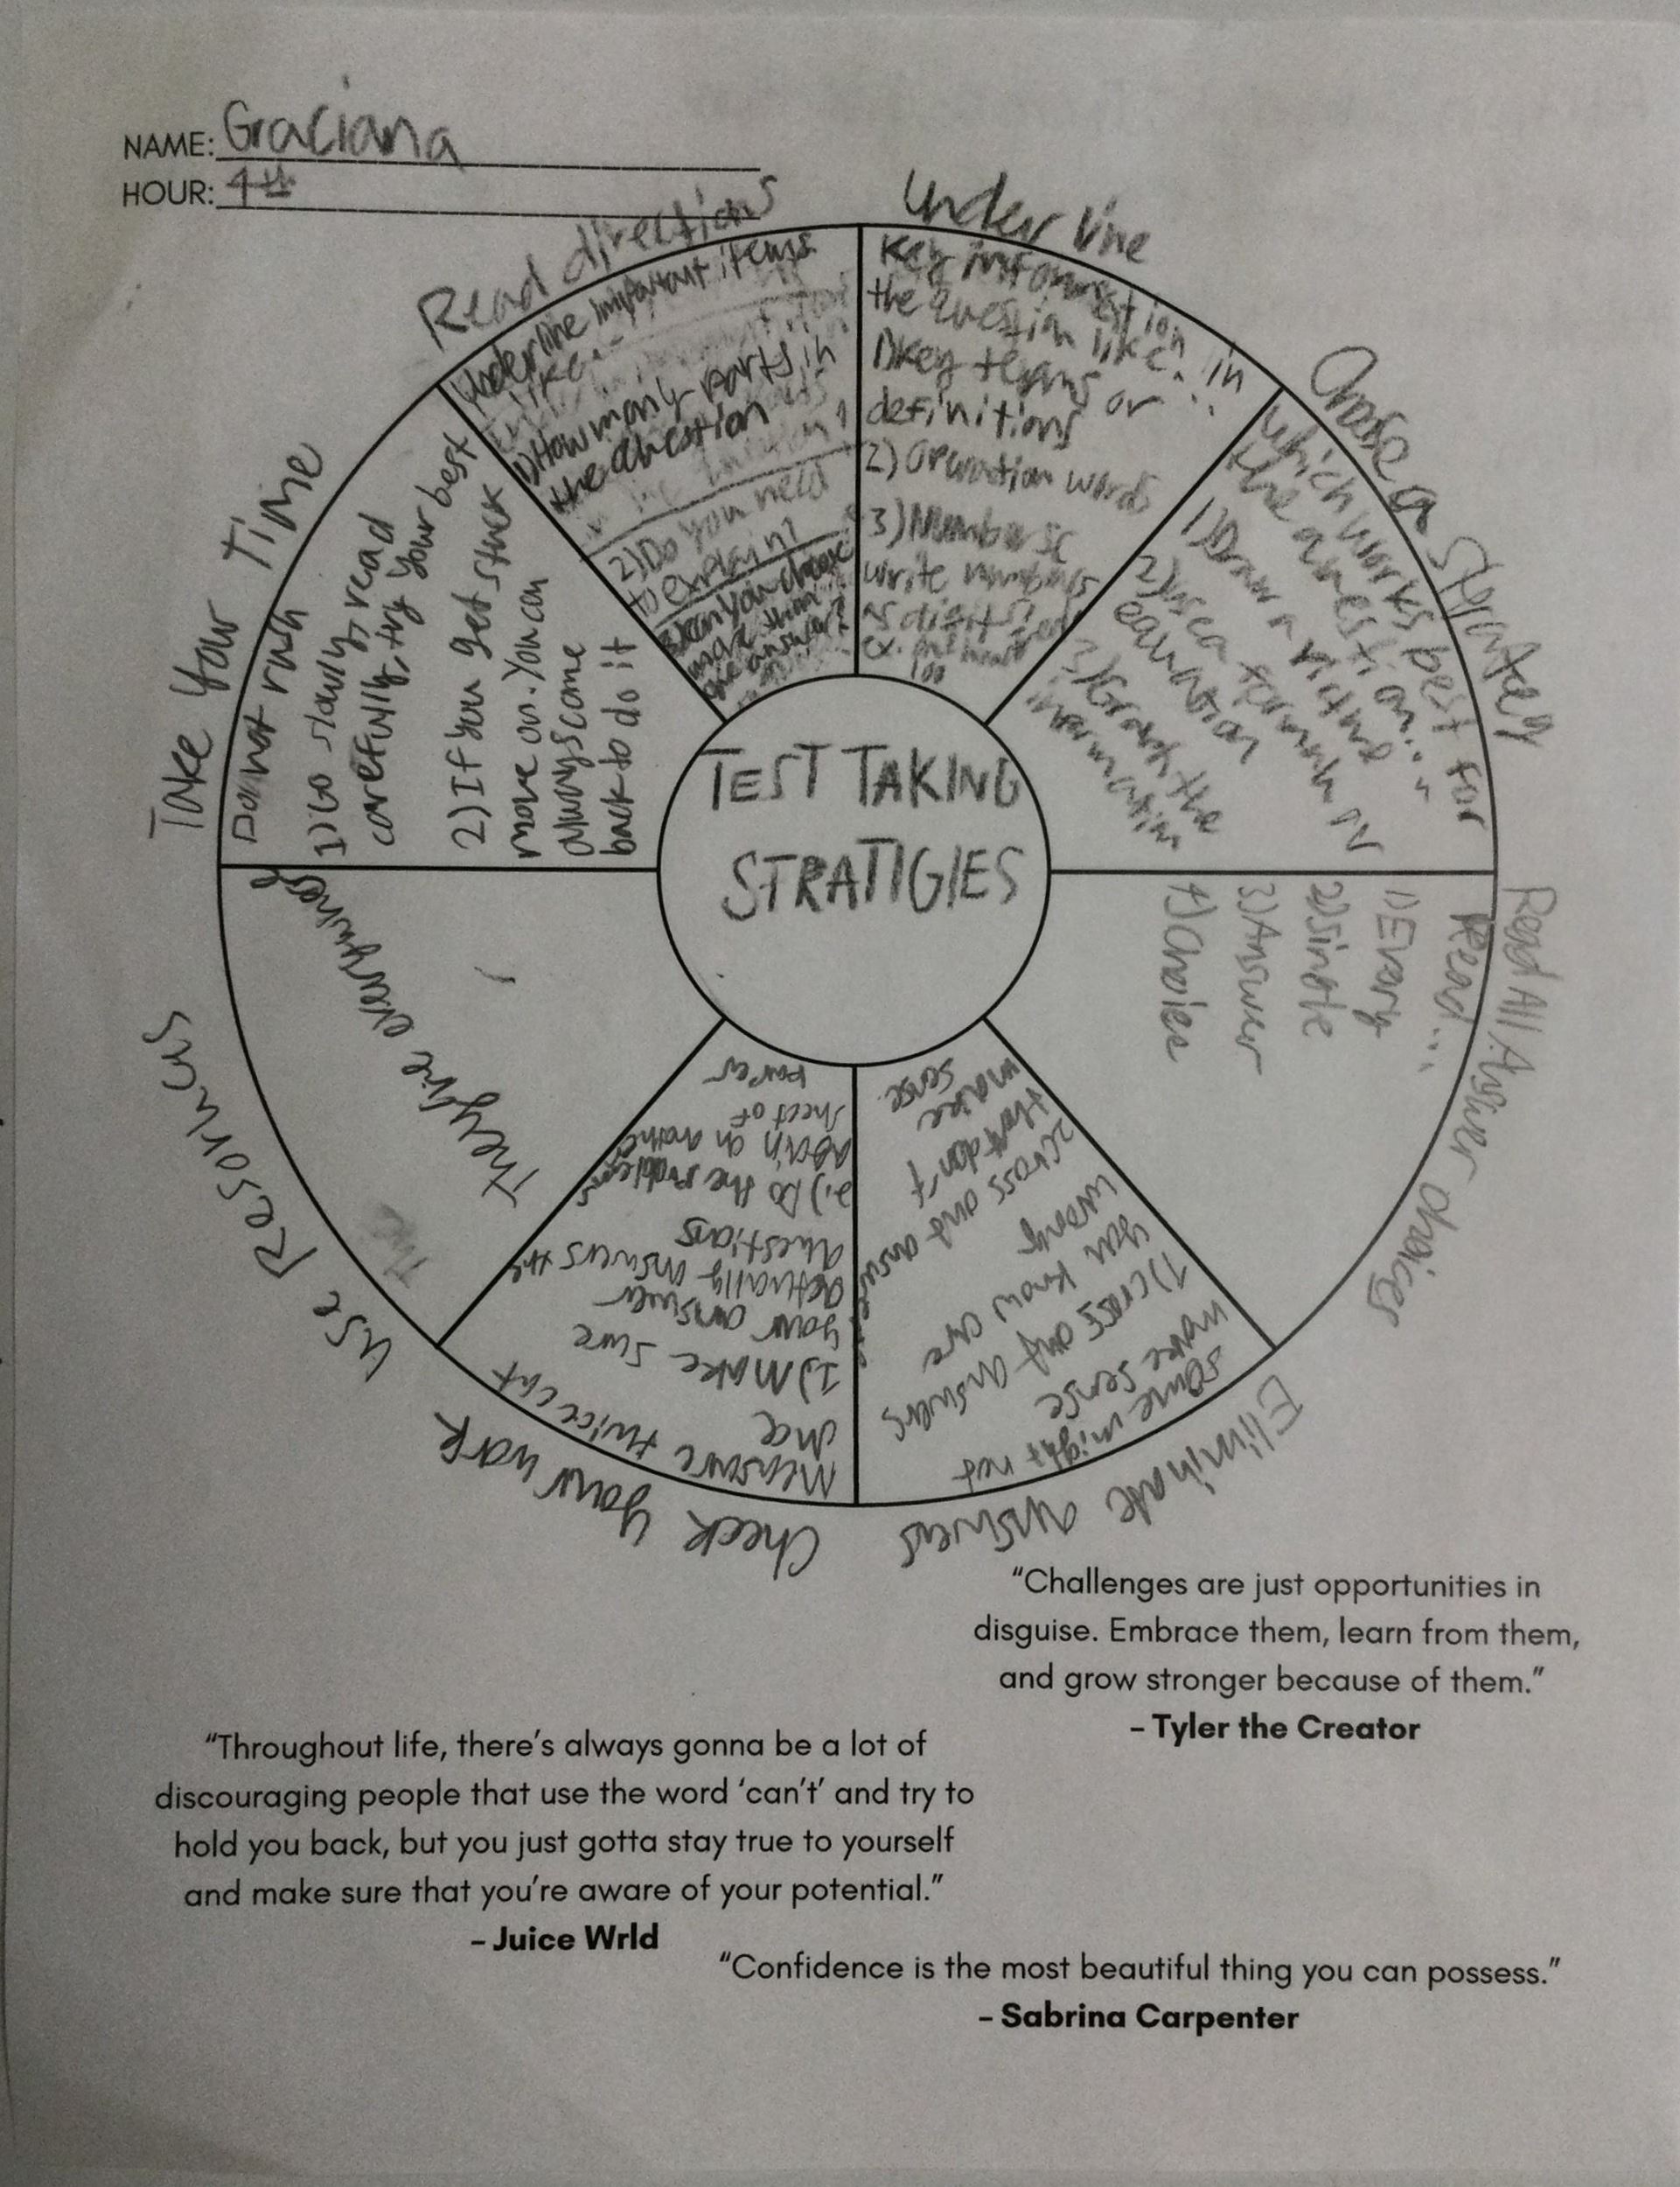 NAME: Graciana
HOUR: 4th
Read directions
Underline important items
like...
1) How many parts in
the question
2) Do you need
to explain?
3) Can you choose
more than
one answer?
Under line
Key information in
the question like...
1) Key terms or
definitions
2) Operation words
3) Numbers
write numbers
as digits
ex. one hundred
100
Chose a Strategy
which works best for
the question...
1) Draw a picture
2) Use a formula or
equation
3) Graph the
information
Read All Answer choices
Read...
1) Every
2) Single
3) Answer
4) Choice
Eliminate answers
some might not
make sense
1) cross out answers
you know are
wrong
2 cross out answers
that don't
make
sense
Check your work
Measure twice cut
once
1.) Make sure
your answer
actually answers the
questions
2.) Do the problem
again on another
sheet of
paper
Use Resorucs
They're everywhere
The
Take Your Time
Do not rush
1) Go slowly, read
carefully, try your best
2) If you get stuck
move on. You can
always come
back to do it
TEST TAKING
STRATIGIES
“Challenges are just opportunities in
disguise. Embrace them, learn from them,
and grow stronger because of them.”
– Tyler the Creator
“Throughout life, there’s always gonna be a lot of
discouraging people that use the word ‘can’t’ and try to
hold you back, but you just gotta stay true to yourself
and make sure that you’re aware of your potential.”
– Juice Wrld
“Confidence is the most beautiful thing you can possess.”
– Sabrina Carpenter